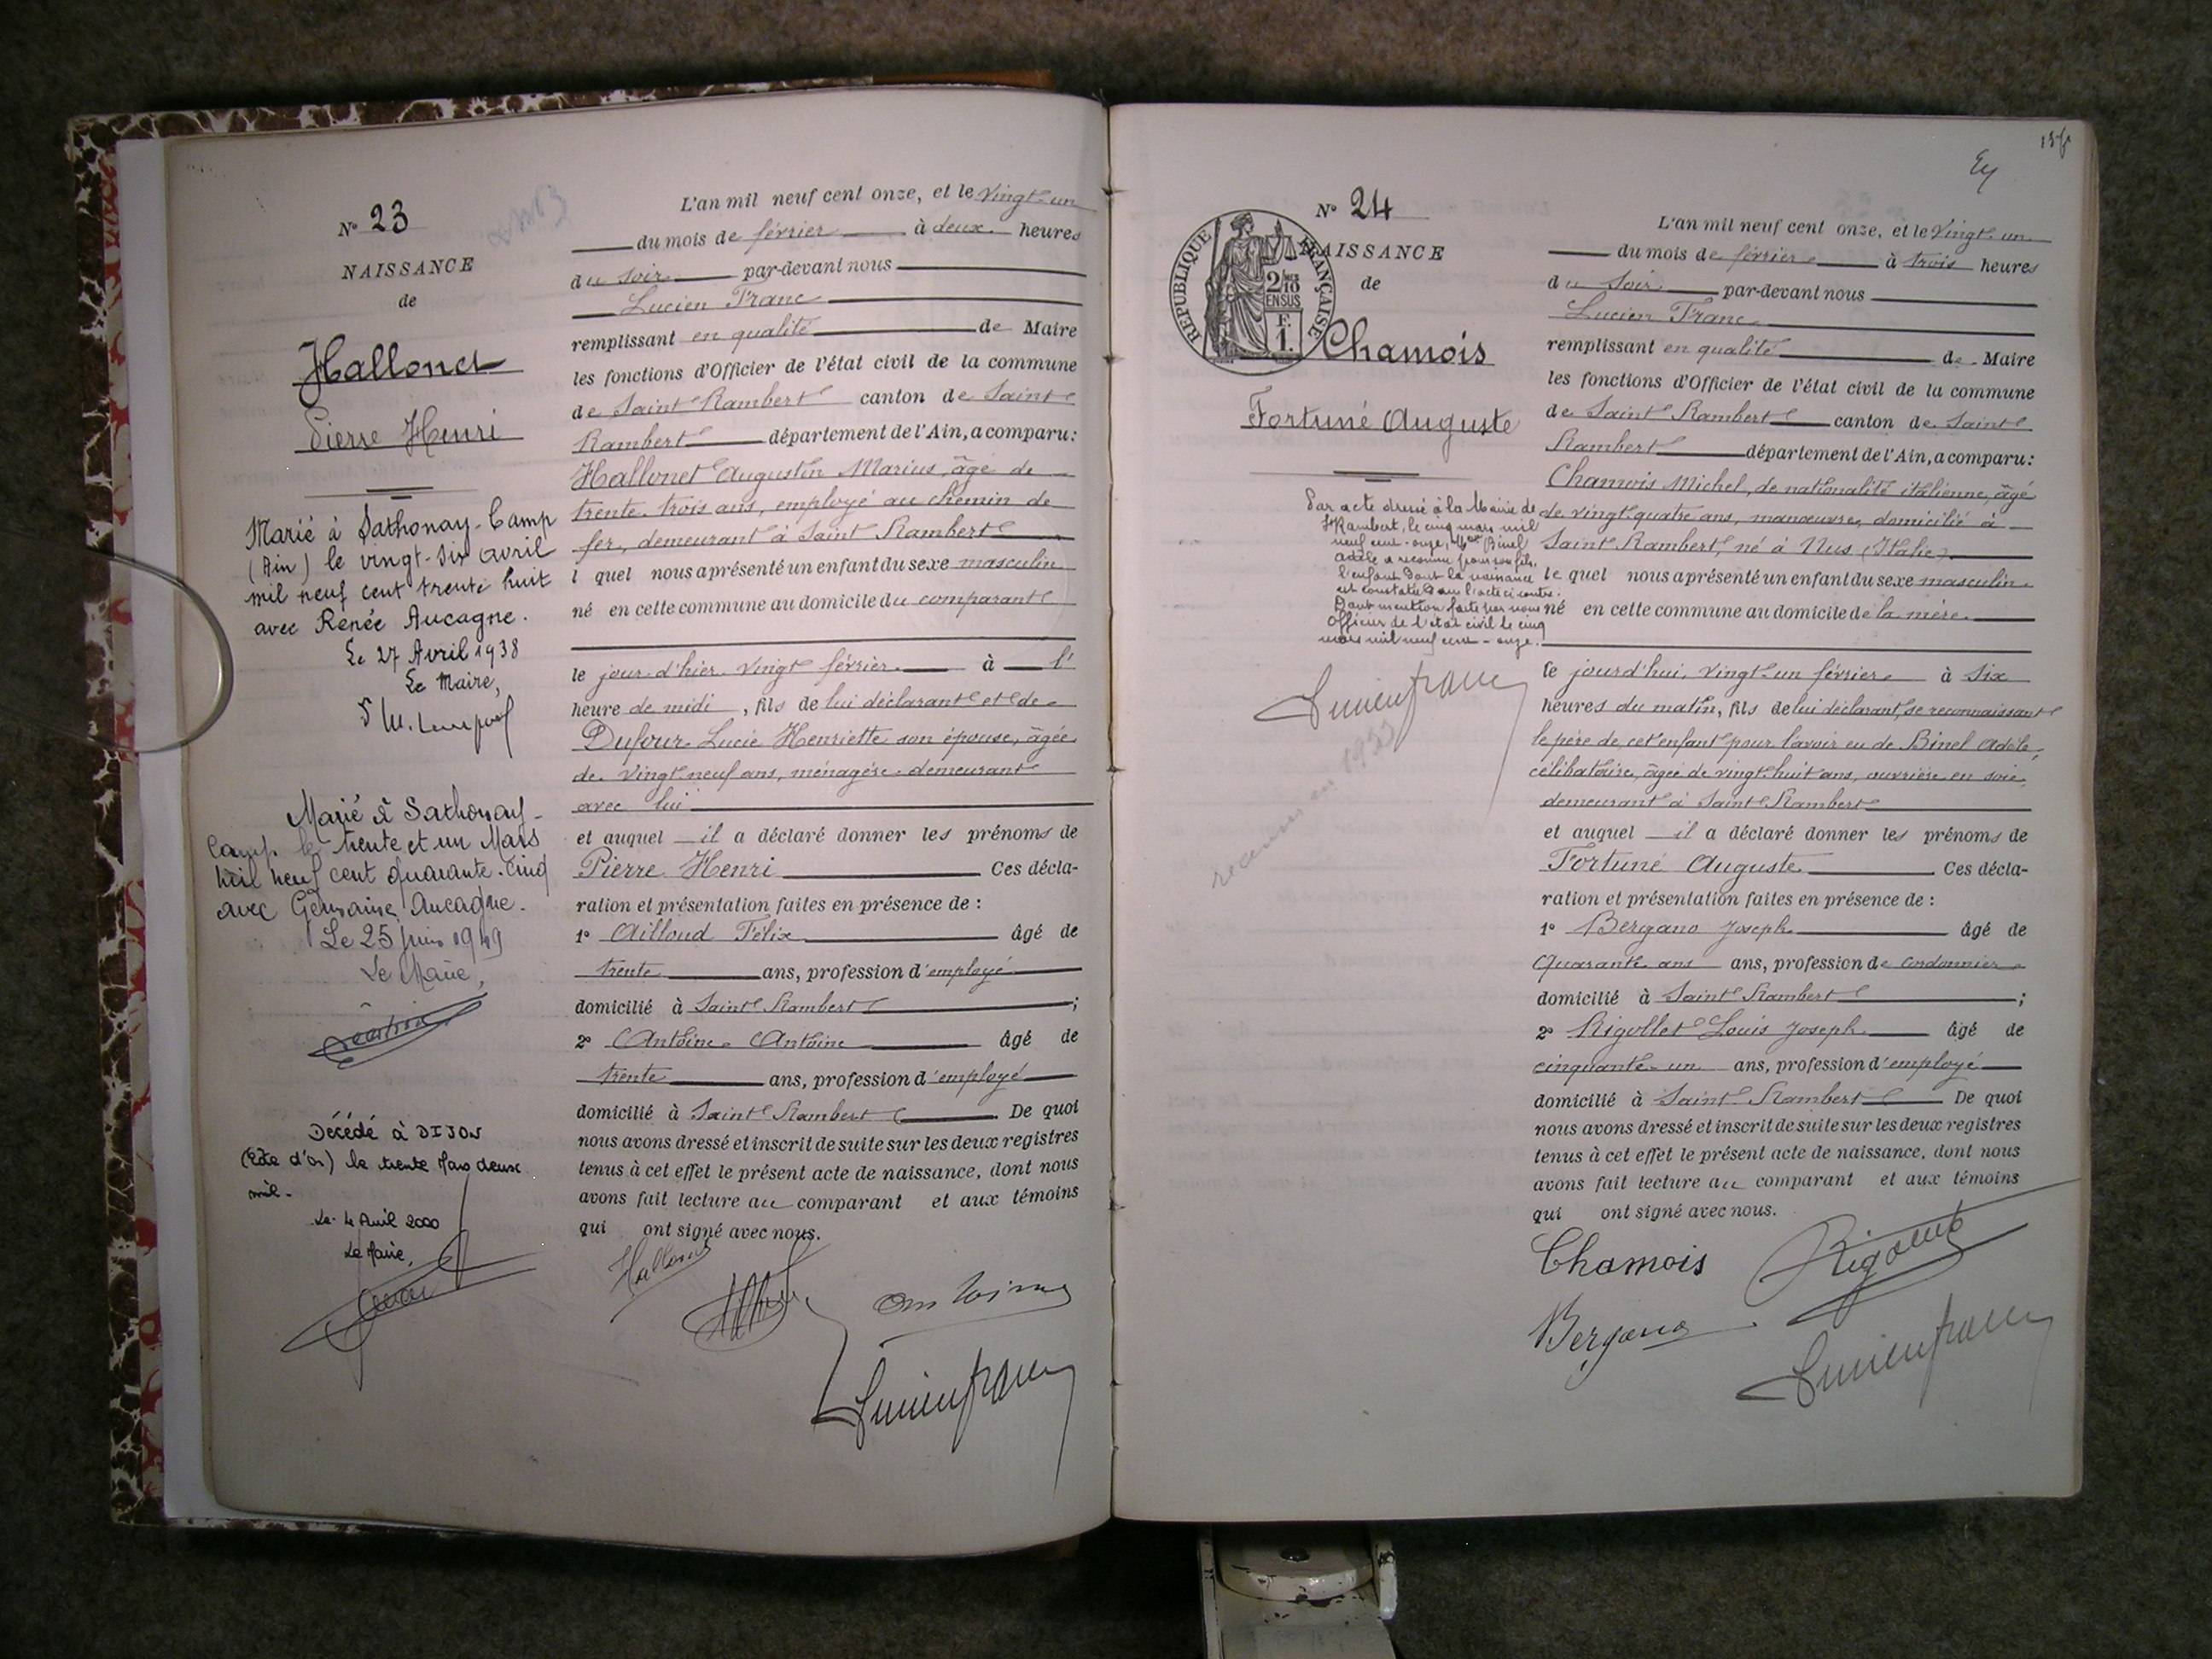 N° 23
NAISSANCE
de
Hallonet
Pierre Henri
Marié à Sathonay-Camp
(Ain) le vingt-six avril
mil neuf cent trente huit
avec Renée Aucagne.
Le 27 Avril 1938
Le Maire,
Marié à Sathonay-
Camp le trente et un Mars
mil neuf cent quarante-cinq
avec Germaine Aucagne.
Le 25 juin 1949
Le Maire,
Décédé à DIJON
(Côte d'or) le trente Mars deux
mil.
Le 4 Avril 2000
Le Maire,
L'an mil neuf cent onze, et le vingt-un
du mois de février à deux heures
du soir par-devant nous
Lucien Franc
remplissant en qualité de Maire
les fonctions d'Officier de l'état civil de la commune
de Saint Rambert canton de Saint
Rambert département de l'Ain, a comparu:
Hallonet Augustin Marius, âgé de
trente-trois ans, employé au chemin de
fer, demeurant à Saint Rambert
l quel nous a présenté un enfant du sexe masculin
né en cette commune au domicile du comparant
le jour d'hier vingt février à l'
heure de midi, fils de lui déclarant et de
Dufour Lucie Henriette son épouse, âgée
de vingt neuf ans, ménagère demeurant
avec lui
et auquel il a déclaré donner les prénoms de
Pierre Henri Ces décla-
ration et présentation faites en présence de :
1° Ailloud Félix âgé de
trente ans, profession d'employé
domicilié à Saint Rambert ;
2° Antoine Antoine âgé de
trente ans, profession d'employé
domicilié à Saint Rambert. De quoi
nous avons dressé et inscrit de suite sur les deux registres
tenus à cet effet le présent acte de naissance, dont nous
avons fait lecture au comparant et aux témoins
qui ont signé avec nous.
Hallonet
Antoine
Lucien franc
24
N° 24
RÉPUBLIQUE FRANÇAISE
2/10
EN SUS
F.
1.
NAISSANCE
de
Chamois
Fortuné Auguste
Par acte dressé à la Mairie de
St Rambert, le cinq mars mil
neuf cent-onze, Binel
Adèle a reconnu pour son fils,
l'enfant dont la naissance
est constatée dans l'acte ci-contre.
Dont mention faite par nous
Officier de l'état civil le cinq
mars mil neuf cent-onze.
Lucien franc
recensé en 1933
L'an mil neuf cent onze, et le vingt-un
du mois de février à trois heures
du soir par-devant nous
Lucien Franc
remplissant en qualité de Maire
les fonctions d'Officier de l'état civil de la commune
de Saint Rambert canton de Saint
Rambert département de l'Ain, a comparu:
Chamois Michel, de nationalité italienne, âgé
de vingt-quatre ans, manœuvre, domicilié à
Saint Rambert, né à Nus (Italie).
le quel nous a présenté un enfant du sexe masculin
né en cette commune au domicile de la mère
le jourd'hui, vingt-un février à six
heures du matin, fils de lui déclarant, se reconnaissant
le père de cet enfant pour l'avoir eu de Binel Adèle,
célibataire, âgée de vingt-huit ans, ouvrière en soie,
demeurant à Saint Rambert
et auquel il a déclaré donner les prénoms de
Fortuné Auguste. Ces décla-
ration et présentation faites en présence de :
1° Bergano Joseph âgé de
quarante ans ans, profession de cordonnier
domicilié à Saint Rambert ;
2° Rigollet Louis Joseph âgé de
cinquante-un ans, profession d'employé
domicilié à Saint Rambert De quoi
nous avons dressé et inscrit de suite sur les deux registres
tenus à cet effet le présent acte de naissance, dont nous
avons fait lecture au comparant et aux témoins
qui ont signé avec nous.
Chamois
Rigollet
Bergano
Lucien franc